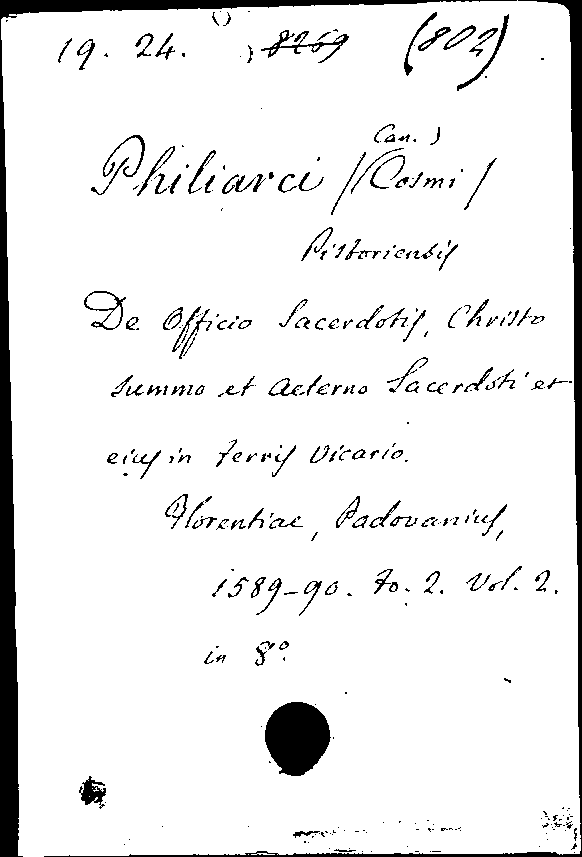 19. 24. 8269 (802)
Can.)
Philiarci /(Cosmi/
Pistoriensis
De Officio Sacerdotis, Christo
summo et aeterno Sacerdoti et
eius in terris vicario.
Florentiae, Padovanius,
1589-90. to. 2. Vol. 2.
in 8º.